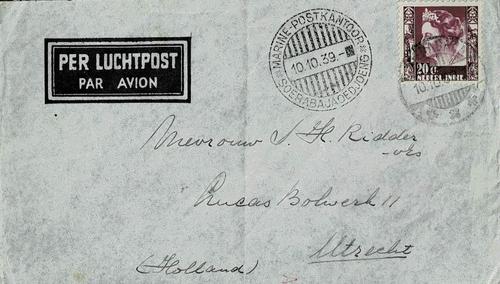 PER LUCHTPOST
PAR AVION
MARINE-POSTKANTOOR
10.10.39.-
SOERABAJAOEDJOENG
20 CT.
NEDERL. INDIE
10.10
Mevrouw S. H. Ridder
-vos
Lucas Bolwerk 11
Utrecht
(Holland)